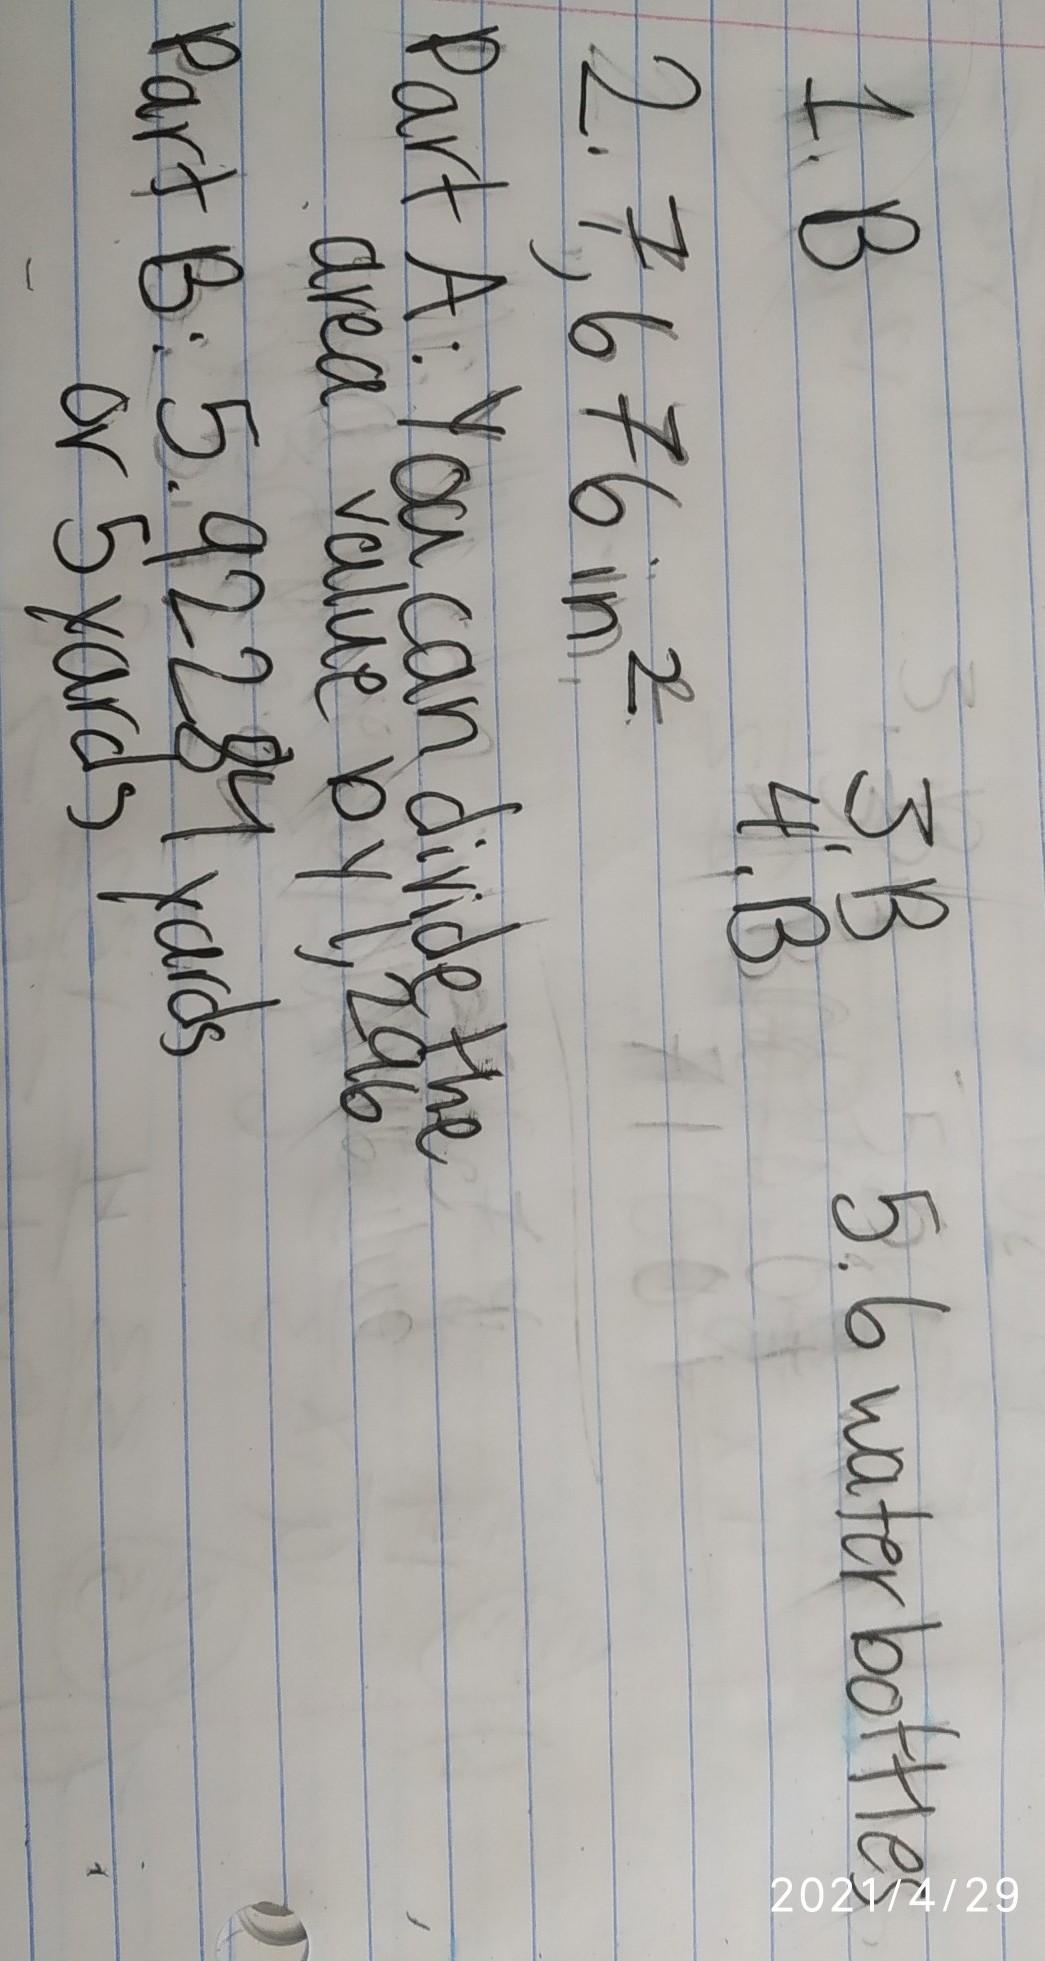 1. B
3. B
4. B
5. 6 water bottles
2. 7,676 in²
Part A: You can divide the
area value by 1,296
Part B: 5.92284 yards
or 5 yards
2021/4/29